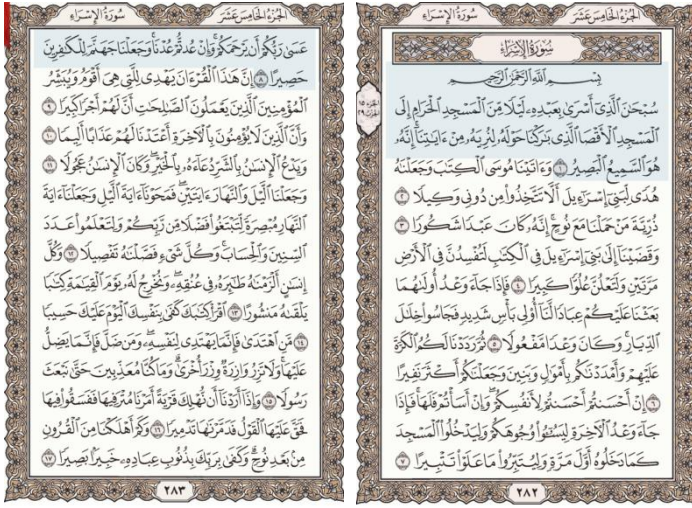 سُورَةُ الإِسْرَاءِ الجُزْءُ الخَامِسَ عَشَرَ
سُورَةُ الإِسْرَاءِ
بِسْمِ اللَّهِ الرَّحْمَٰنِ الرَّحِيمِ
سُبْحَٰنَ الَّذِي أَسْرَىٰ بِعَبْدِهِ لَيْلًا مِّنَ الْمَسْجِدِ الْحَرَامِ إِلَى
الْمَسْجِدِ الْأَقْصَا الَّذِي بَٰرَكْنَا حَوْلَهُ لِنُرِيَهُ مِنْ ءَايَٰتِنَا إِنَّهُ
هُوَ السَّمِيعُ الْبَصِيرُ ١ وَءَاتَيْنَا مُوسَى الْكِتَٰبَ وَجَعَلْنَٰهُ
هُدًى لِّبَنِي إِسْرَٰٓءِيلَ أَلَّا تَتَّخِذُوا مِن دُونِي وَكِيلًا ٢
ذُرِّيَّةَ مَنْ حَمَلْنَا مَعَ نُوحٍ إِنَّهُ كَانَ عَبْدًا شَكُورًا ٣
وَقَضَيْنَا إِلَىٰ بَنِي إِسْرَٰٓءِيلَ فِي الْكِتَٰبِ لَتُفْسِدُنَّ فِي الْأَرْضِ
مَرَّتَيْنِ وَلَتَعْلُنَّ عُلُوًّا كَبِيرًا ٤ فَإِذَا جَاءَ وَعْدُ أُولَىٰهُمَا
بَعَثْنَا عَلَيْكُمْ عِبَادًا لَّنَا أُولِي بَأْسٍ شَدِيدٍ فَجَاسُوا خِلَٰلَ
الدِّيَارِ وَكَانَ وَعْدًا مَّفْعُولًا ٥ ثُمَّ رَدَدْنَا لَكُمُ الْكَرَّةَ
عَلَيْهِمْ وَأَمْدَدْنَٰكُم بِأَمْوَٰلٍ وَبَنِينَ وَجَعَلْنَٰكُمْ أَكْثَرَ نَفِيرًا
٦ إِنْ أَحْسَنتُمْ أَحْسَنتُمْ لِأَنفُسِكُمْ وَإِنْ أَسَأْتُمْ فَلَهَا فَإِذَا
جَاءَ وَعْدُ الْءَاخِرَةِ لِيَسُـُٔوا وُجُوهَكُمْ وَلِيَدْخُلُوا الْمَسْجِدَ
كَمَا دَخَلُوهُ أَوَّلَ مَرَّةٍ وَلِيُتَبِّرُوا مَا عَلَوْا تَتْبِيرًا ٧
٢٨٢
سُورَةُ الإِسْرَاءِ الجُزْءُ الخَامِسَ عَشَرَ
عَسَىٰ رَبُّكُمْ أَن يَرْحَمَكُمْ وَإِنْ عُدتُّمْ عُدْنَا وَجَعَلْنَا جَهَنَّمَ لِلْكَٰفِرِينَ
حَصِيرًا ٨ إِنَّ هَٰذَا الْقُرْءَانَ يَهْدِي لِلَّتِي هِيَ أَقْوَمُ وَيُبَشِّرُ
الْمُؤْمِنِينَ الَّذِينَ يَعْمَلُونَ الصَّٰلِحَٰتِ أَنَّ لَهُمْ أَجْرًا كَبِيرًا ٩
وَأَنَّ الَّذِينَ لَا يُؤْمِنُونَ بِالْءَاخِرَةِ أَعْتَدْنَا لَهُمْ عَذَابًا أَلِيمًا ١٠
وَيَدْعُ الْإِنسَٰنُ بِالشَّرِّ دُعَاءَهُ بِالْخَيْرِ وَكَانَ الْإِنسَٰنُ عَجُولًا ١١
وَجَعَلْنَا الَّيْلَ وَالنَّهَارَ ءَايَتَيْنِ فَمَحَوْنَا ءَايَةَ الَّيْلِ وَجَعَلْنَا ءَايَةَ
النَّهَارِ مُبْصِرَةً لِّتَبْتَغُوا فَضْلًا مِّن رَّبِّكُمْ وَلِتَعْلَمُوا عَدَدَ
السِّنِينَ وَالْحِسَابَ وَكُلَّ شَيْءٍ فَصَّلْنَٰهُ تَفْصِيلًا ١٢ وَكُلَّ
إِنسَٰنٍ أَلْزَمْنَٰهُ طَٰٓئِرَهُ فِي عُنُقِهِ وَنُخْرِجُ لَهُ يَوْمَ الْقِيَٰمَةِ كِتَٰبًا
يَلْقَىٰهُ مَنشُورًا ١٣ اقْرَأْ كِتَٰبَكَ كَفَىٰ بِنَفْسِكَ الْيَوْمَ عَلَيْكَ حَسِيبًا
١٤ مَّنِ اهْتَدَىٰ فَإِنَّمَا يَهْتَدِي لِنَفْسِهِ وَمَن ضَلَّ فَإِنَّمَا يَضِلُّ
عَلَيْهَا وَلَا تَزِرُ وَازِرَةٌ وِزْرَ أُخْرَىٰ وَمَا كُنَّا مُعَذِّبِينَ حَتَّىٰ نَبْعَثَ
رَسُولًا ١٥ وَإِذَا أَرَدْنَا أَن نُّهْلِكَ قَرْيَةً أَمَرْنَا مُتْرَفِيهَا فَفَسَقُوا فِيهَا
فَحَقَّ عَلَيْهَا الْقَوْلُ فَدَمَّرْنَٰهَا تَدْمِيرًا ١٦ وَكَمْ أَهْلَكْنَا مِنَ الْقُرُونِ
مِن بَعْدِ نُوحٍ وَكَفَىٰ بِرَبِّكَ بِذُنُوبِ عِبَادِهِ خَبِيرًا بَصِيرًا ١٧
٢٨٣